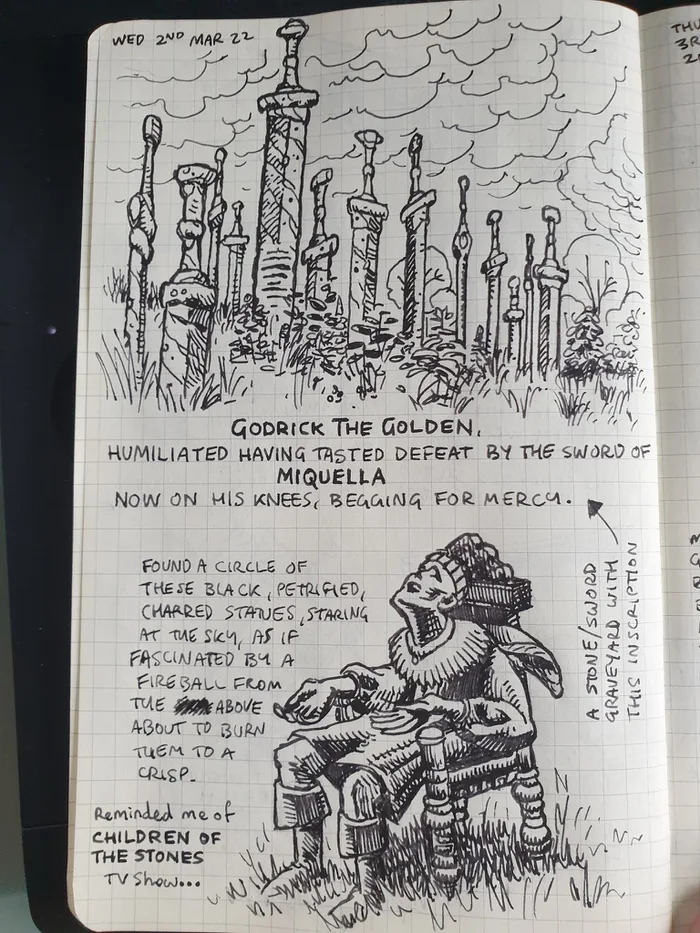 WED 2ND MAR 22
GODRICK THE GOLDEN,
HUMILIATED HAVING TASTED DEFEAT BY THE SWORD OF
MIQUELLA
NOW ON HIS KNEES, BEGGING FOR MERCY.
A STONE/SWORD
GRAVEYARD WITH
THIS INSCRIPTION
FOUND A CIRCLE OF
THESE BLACK, PETRIFIED,
CHARRED STATUES, STARING
AT THE SKY, AS IF
FASCINATED BY A
FIREBALL FROM
THE ABOVE
ABOUT TO BURN
THEM TO A
CRISP.
Reminded me of
CHILDREN OF
THE STONES
TV Show...
THU
3R